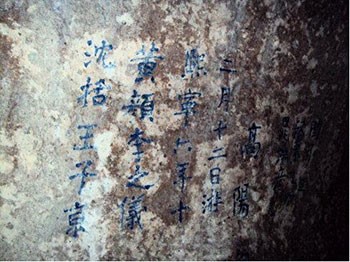 沈括王子京
黃頴李之儀
熙寧六年十
二月十二日游
高陽